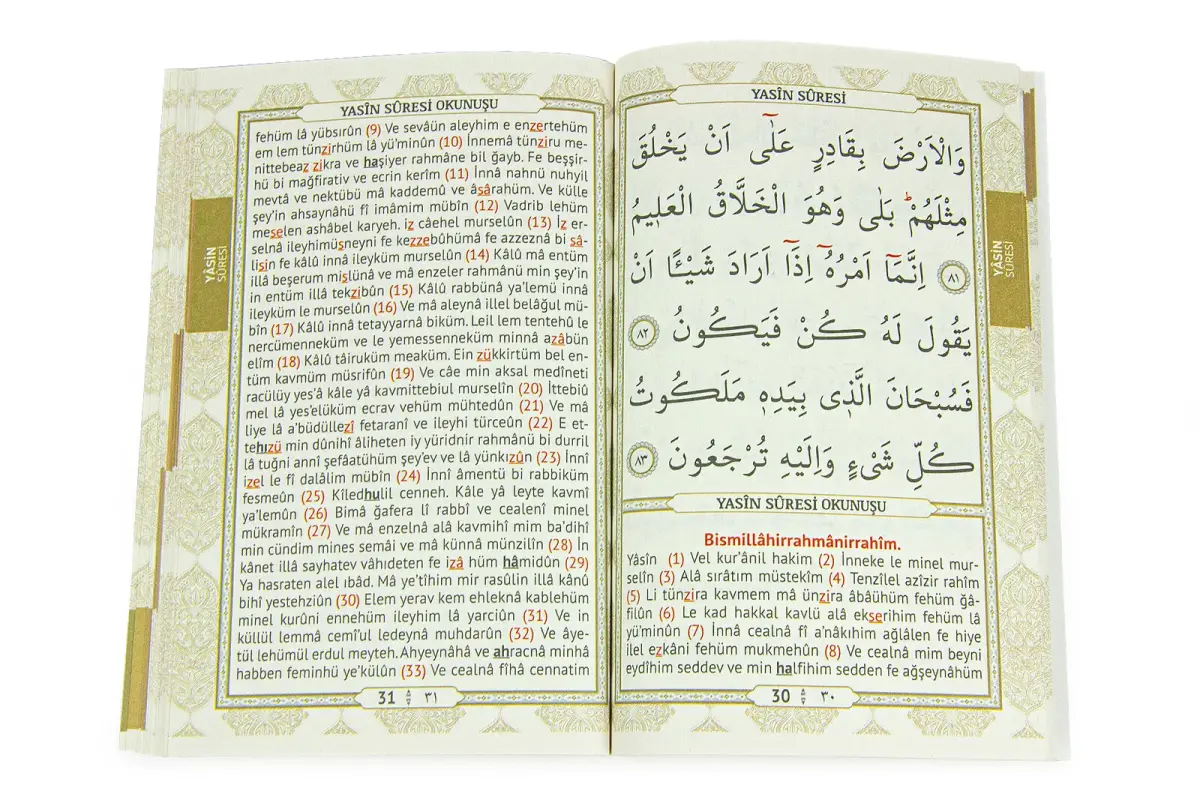 YASÎN SÛRESİ
وَالْاَرْضَ بِقَادِرٍ عَلٰٓى اَنْ يَخْلُقَ
مِثْلَهُمْۜ بَلٰى وَهُوَ الْخَلَّاقُ الْعَل۪يمُ
﴿٨١﴾ اِنَّمَٓا اَمْرُهُٓ اِذَٓا اَرَادَ شَيْـًٔا اَنْ
يَقُولَ لَهُ كُنْ فَيَكُونُ ﴿٨٢﴾
فَسُبْحَانَ الَّذ۪ي بِيَدِه۪ مَلَكُوتُ
كُلِّ شَيْءٍ وَاِلَيْهِ تُرْجَعُونَ ﴿٨٣﴾
YASÎN SÛRESİ OKUNUŞU
Bismillâhirrahmânirrahîm.
Yâsîn (1) Vel kur'ânil hakim (2) İnneke le minel mur-
selîn (3) Alâ sırâtım müstekîm (4) Tenzîlel azîzir rahîm
(5) Li tünzira kavmem mâ ünzira âbâühüm fehüm ğâ-
filûn (6) Le kad hakkal kavlü alâ ekserihim fehüm lâ
yü'minûn (7) İnnâ cealnâ fî a'nâkıhim ağlâlen fe hiye
ilel ezkâni fehüm mukmehûn (8) Ve cealnâ mim beyni
eydîhim seddev ve min halfihim sedden fe ağşeynâhüm
30 ٣٠
YÂSİN
SÛRESİ
YASÎN SÛRESİ OKUNUŞU
fehüm lâ yübsırûn (9) Ve sevâün aleyhim e enzertehüm
em lem tünzirhüm lâ yü'minûn (10) İnnemâ tünziru me-
nittebeaz zikra ve haşiyer rahmâne bil ğayb. Fe beşşir-
hü bi mağfirativ ve ecrin kerîm (11) İnnâ nahnü nuhyil
mevtâ ve nektübü mâ kaddemû ve âsârahüm. Ve külle
şey'in ahsaynâhü fî imâmim mübîn (12) Vadrib lehüm
meselen ashâbel karyeh. iz câehel murselûn (13) İz er-
selnâ ileyhimüsneyni fe kezzebûhümâ fe azzeznâ bi sâ-
lisin fe kâlû innâ ileyküm murselûn (14) Kâlû mâ entüm
illâ beşerum mislünâ ve mâ enzeler rahmânü min şey'in
in entüm illâ tekzibûn (15) Kâlû rabbünâ ya'lemü innâ
ileyküm le murselûn (16) Ve mâ aleynâ illel belâğul mü-
bîn (17) Kâlû innâ tetayyarnâ biküm. Leil lem tentehû le
nercümenneküm ve le yemessenneküm minnâ azâbün
elîm (18) Kâlû tâiruküm meaküm. Ein zükkirtüm bel en-
tüm kavmüm müsrifûn (19) Ve câe min aksal medîneti
racülüy yes'â kâle yâ kavmittebiul murselîn (20) İttebiû
mel lâ yes'elüküm ecrav vehüm mühtedûn (21) Ve mâ
liye lâ a'büdüllezî fetaranî ve ileyhi türceûn (22) E et-
tehızü min dûnihî âliheten iy yüridnir rahmânü bi durril
lâ tuğni annî şefâatühüm şey'ev ve lâ yünkızûn (23) İnnî
izel le fî dalâlim mübîn (24) İnnî âmentü bi rabbiküm
fesmeûn (25) Kîledhulil cenneh. Kâle yâ leyte kavmî
ya'lemûn (26) Bimâ ğafera lî rabbî ve cealenî minel
mükramîn (27) Ve mâ enzelnâ alâ kavmihî mim ba'dihî
min cündim mines semâi ve mâ künnâ münzilîn (28) İn
kânet illâ sayhatev vâhıdeten fe izâ hüm hâmidûn (29)
Ya hasraten alel ıbâd. Mâ ye'tîhim mir rasûlin illâ kânû
bihî yestehziûn (30) Elem yerav kem ehleknâ kablehüm
minel kurûni ennehüm ileyhim lâ yarciûn (31) Ve in
küllül lemmâ cemî'ul ledeynâ muhdarûn (32) Ve âye-
tül lehümül erdul meyteh. Ahyeynâhâ ve ahracnâ minhâ
habben feminhü ye'külûn (33) Ve cealnâ fîhâ cennatim
31 ٣١
YÂSİN
SÛRESİ